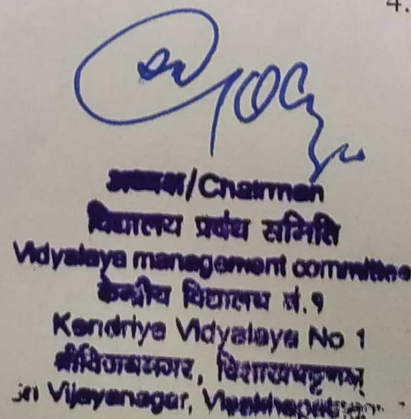 4.
अध्यक्ष/Chairman
विद्यालय प्रबंध समिति
Vidyalaya management committee
केन्द्रीय विद्यालय नं.१
Kendriya Vidyalaya No 1
श्रीविजयनगर, विशाखपट्टणम
Sri Vijayanagar,